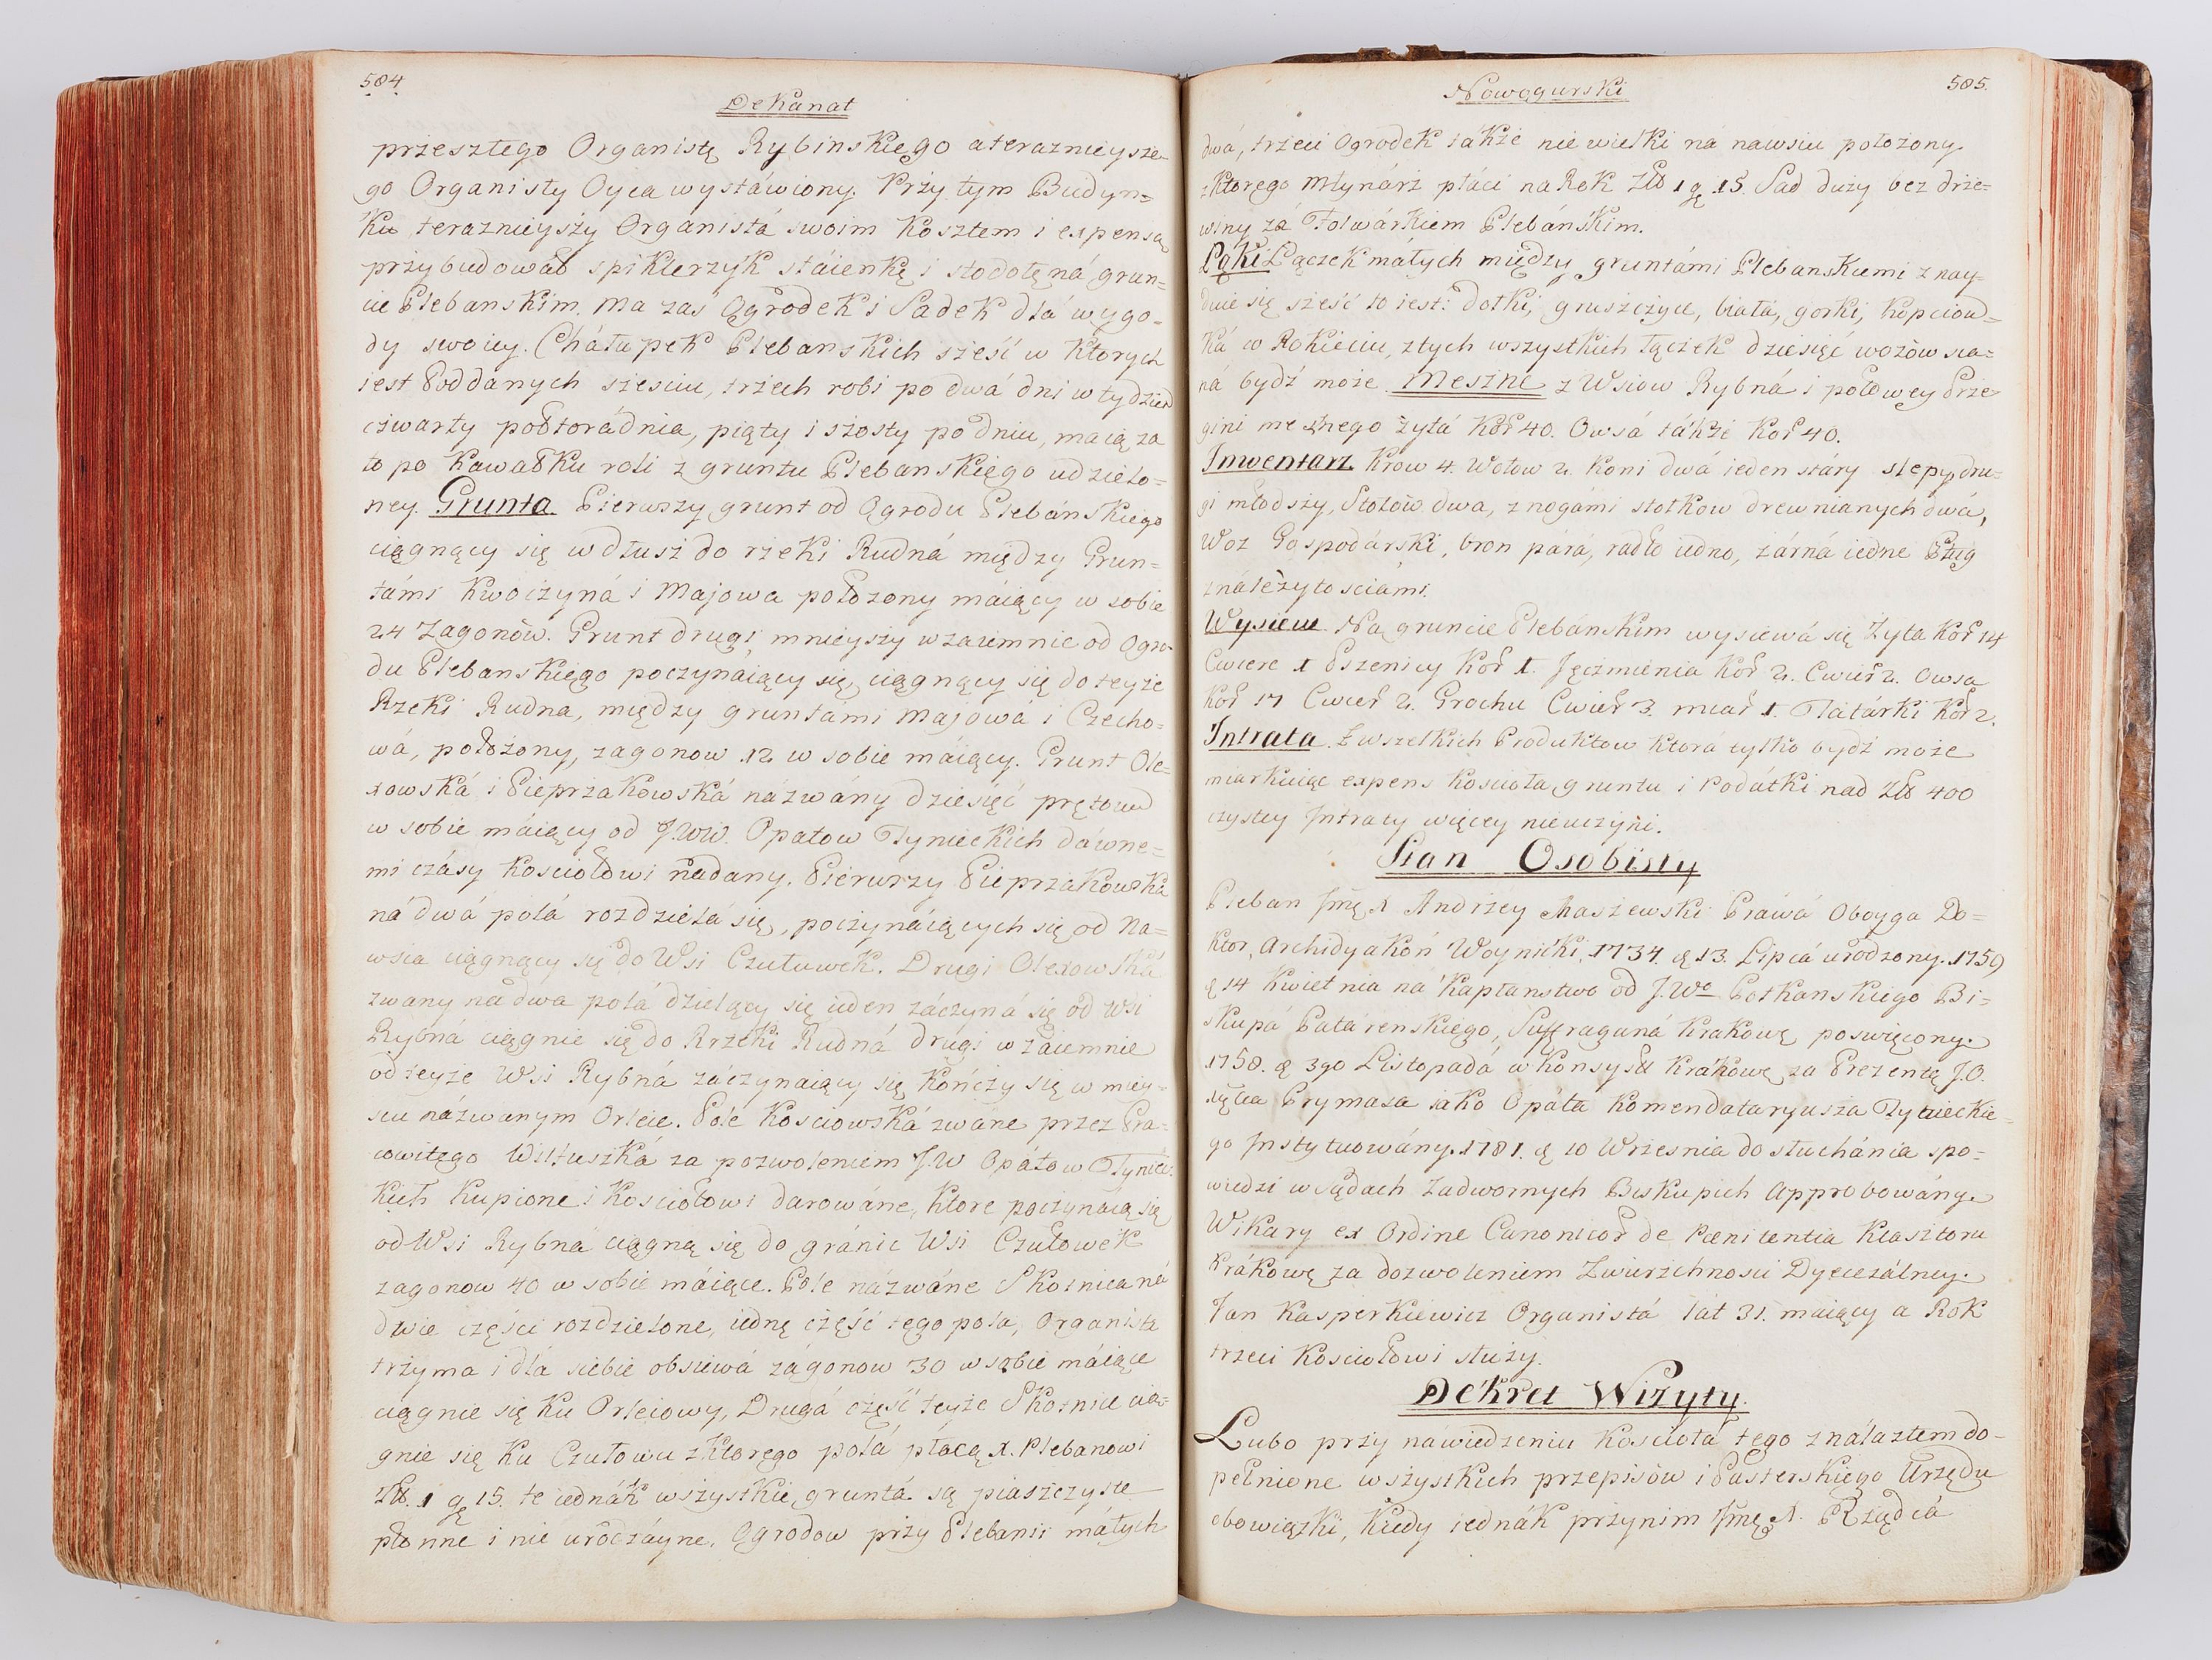 584
Dekanat
przeszłego Organistę Rybinskiego a teraznieysze-
go Organisty Oyca wystáwiony. Przy tym Budyn=
ku teraznieyszy Organistá swoim Kosztem i expensą
przybudował spiklerzyk stáienkę i stodołę ná grun=
cie Plebanskim. Ma zas Ogrodek i Sadek dlá wygo=
dy swoiey. Cháłupek Plebanskich sześć w ktorych
iest Poddanych szesciu, trzech robi po dwá dni w tydzień
czwarty połtorá dnia, piąty i szosty po dniu, maią za
to po Kawałku roli z gruntu Plebanskięgo udzielo=
ney. Grunta Pierwszy grunt od Ogrodu Plebánskiego
ciągnący się w dłusz do rzeki Rudná między Grun=
támi Kwoczyná i Majowa położony máiący w sobie
24 Zagonów. Grunt drugi, mnieyszy wzaiemnie od Ogro=
du Plebanskięgo poczynaiący się, ciągnący się do teyże
Rzeki Rudna, między gruntámi Majowá i Czecho=
wá, położony, zagonow 12 w sobie máiący. Grunt Ole=
xowská i Pieprzakowská názwány dziesięć prętow
w sobie máiący od J.WW. Opatow Tynieckich dáwne=
mi czásy Kosciołowi nadany. Pierwszy Pieprzakowska
ná dwá polá rozdzielá się, poczynáiących się od Na=
wsia ciągnący się do Wsi Czułuwek. Drugi Olexowská
zwany na dwa polá dzielący się ieden záczyná się od Wsi
Rybná ciągnie się do Rzeki Rudná drúgi wzaiemnie
od teyże Wsi Rybná záczynaiący się kończy się w miey=
scu názwanym Orlcie. Pole Kosciowská zwáne przez Pra=
cowitego Wiltuszká za pozwoleniem J.W Opátow Tyniec=
kich kupione i Kosciołowi darowáne, ktore poczynaią się
od Wsi Rybná ciągną się do gránic Wsi Czułowek
zagonow 40 w sobie máiące. Pole názwáne Skotnica ná
dwie części rozdzielone, iednę część tego pola, Organista
trzyma i dlá siebie obsiewá zágonow 30 w sobie máiące
ciągnie się ku Orlciowy, Drugá część teyże Skotnice cią=
gnie się ku Czułowu z ktorego polá płacą X. Plebanowi
Zł. 1 g 15. te iednák wszystkie gruntá są piaszczyste
płonne i nie urodzáyne. Ogrodow przy Plebanii małych
Nowogurski
585.
dwá, trzeci Ogrodek takźe nie wielki ná nawsiu położony
z ktorego Młynárz płáci na Rok Zł 1 g 15. Sad duży bez drze=
winy zá Folwárkiem Plebáńskim.
Łąki Łączek máłych między gruntámi Plebanskiemi znay=
duie się sześć to iest: Dołki, gruszczyce, biała, gorki, Kopciow=
ká w Rokiciu, z tych wszystkich łączek dziesięć wozów sia=
ná bydź może. Meszne z Wsiow Rybná i połowey Prze
gini mesznego Zytá Kor 40. Owsá tákże Kor 40.
Inwentarz Krow 4. Wołow 2. Koni dwá ieden stáry slepy dru=
gi młodszy, Stołów dwa, z nogámi stołkow drewnianych dwá,
Woz Gospodárski, bron párá, radło iedno, zárná iedne Pług
z náleżytosciámi.
Wysiew Na gruncie Plebanskim wysiewá się Zyta Kor 14
Cwierc 1 Pszenicy Kor 1. Jęczmienia Kor 2. Cwier 2. Owsa
Kor 17 Cwier 2. Grochu Cwier 3. miar 1. Tatárki Kor 2.
Intrata. Z wszelkich Produktow ktorá tylko bydź może
miarkuiąc expens Kosciołá, gruntu i Podátki nad Zł 400
czystey Intraty więcey nieuczyni.
Stan Osobisty
Pleban Jmę X Andrzey Maszewski Prawá Oboyga Do=
ktor, Archidyakoń Woynicki, 1734. d 13. Lipcá urodzony. 1759
d 14 Kwietnia ná Kapłanstwo od J.Wo Potkanskiego Bi=
skupá Patarenskiego, Suffraganá Krakowę poswięcony.
1758. d 3go Listopadá w Konsysłu Krákowę za Prezentą J.O.
Xcia Prymasa iako Opáta Komendataryusza Tynieckie=
go Instytuowány. 1781. d 10 Wrzesnia do słuchánia spo=
wiedzi w Sądach Zadwornych Biskupich Approbowány.
Wikary ex Ordine Canonicor de Pœnitentia Klasztoru
Krákowę za dozwoleniem Zwierzchnosci Dyecezálney.
Jan Kasperkiewicz Organistá lát 31. maiący a Rok
trzeci Kosciołowi służy.
Dekret Wizyty.
Lubo przy nawiedzeniu Kościołá tego ználazłem do=
pełnione wszystkich przepisów i Pasterskiego Urzędu
obowiązki, kiedy iednák przynim Jmę X. Rządcá